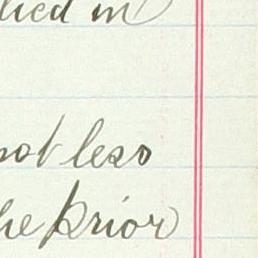 lied in
not less
he prior